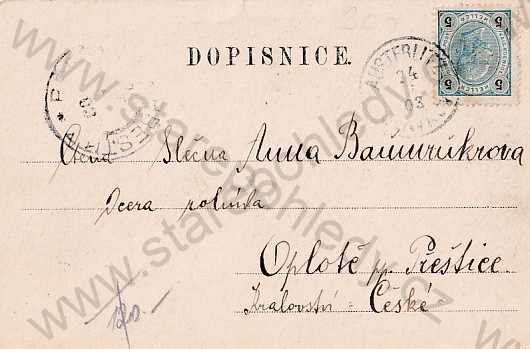 DOPISNICE.
5 HELLER 5
AUSTERLITZ
24
03
03
Ctěná Slečna Anna Baumrukrova
Dcera rolníka
Oplotě p. Přeštice
Kralovství Česke
www.starepohledy.cz